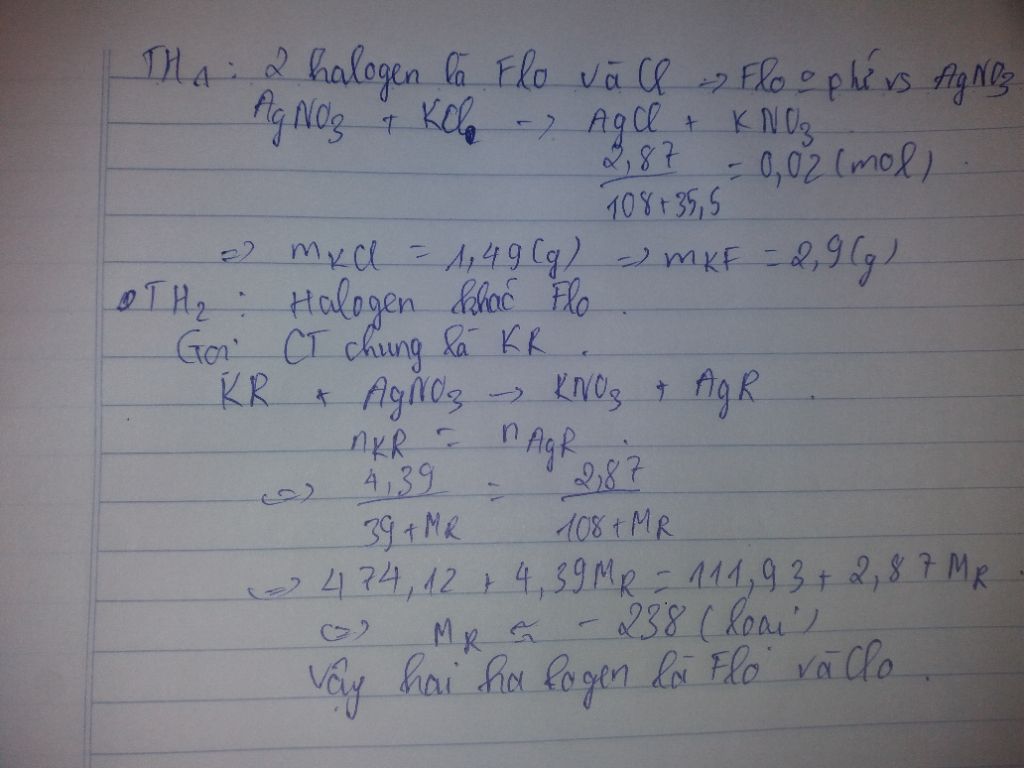 TH1: 2 halogen là Flo và Cl => Flo o phứ vs AgNO3
AgNO3 + KCl -> AgCl + KNO3
2,87 / 108+35,5 = 0,02 (mol).
=> mKCl = 1,49(g) => mKF = 2,9(g)
TH2: Halogen khác Flo.
Gọi CT chung là KR.
KR + AgNO3 -> KNO3 + AgR.
nKR = nAgR.
<=> 4,39 / 39+MR = 2,87 / 108+MR
<=> 474,12 + 4,39MR = 111,93 + 2,87MR.
<=> MR ≈ -238 (loại)
Vậy hai halogen là Flo và Clo.